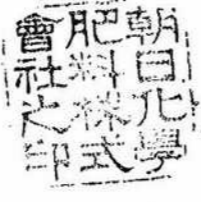 朝日化學
肥料株式
會社之印